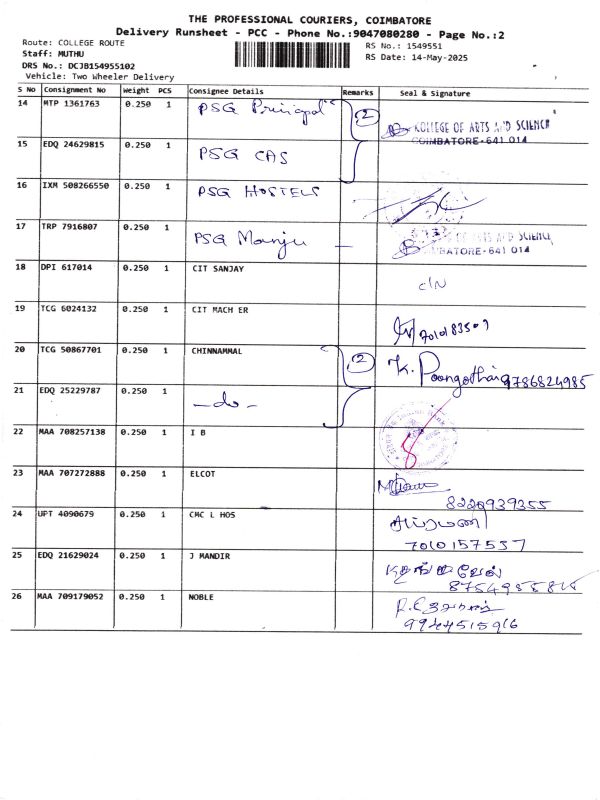 THE PROFESSIONAL COURIERS, COIMBATORE
Delivery Runsheet - PCC - Phone No.:9047080280 - Page No.:2
Route: COLLEGE ROUTE
Staff: MUTHU
DRS No.: DCJB154955102
Vehicle: Two Wheeler Delivery
RS No.: 1549551
RS Date: 14-May-2025
S No Consignment No Weight PCS Consignee Details Remarks Seal & Signature
14 MTP 1361763 0.250 1 PSG Principal 2 KOLLEGE OF ARTS AND SCIENCE
COIMBATORE-641 014
15 EDQ 24629815 0.250 1 PSG CAS
16 IXM 508266550 0.250 1 PSG HOSTELS
17 TRP 7916807 0.250 1 PSG Manju OF ARTS AND SCIENCE
BATORE-641 014
18 DPI 617014 0.250 1 CIT SANJAY C/N
19 TCG 6024132 0.250 1 CIT MACH ER
20 TCG 50867701 0.250 1 CHINNAMMAL 2 K. Poongothai 9786824985
21 EDQ 25229787 0.250 1 -do-
22 MAA 708257138 0.250 1 I B
23 MAA 707272888 0.250 1 ELCOT
8220939355
24 UPT 4090679 0.250 1 CMC L HOS
7010157557
25 EDQ 21629024 0.250 1 J MANDIR
26 MAA 709179052 0.250 1 NOBLE
9944515916